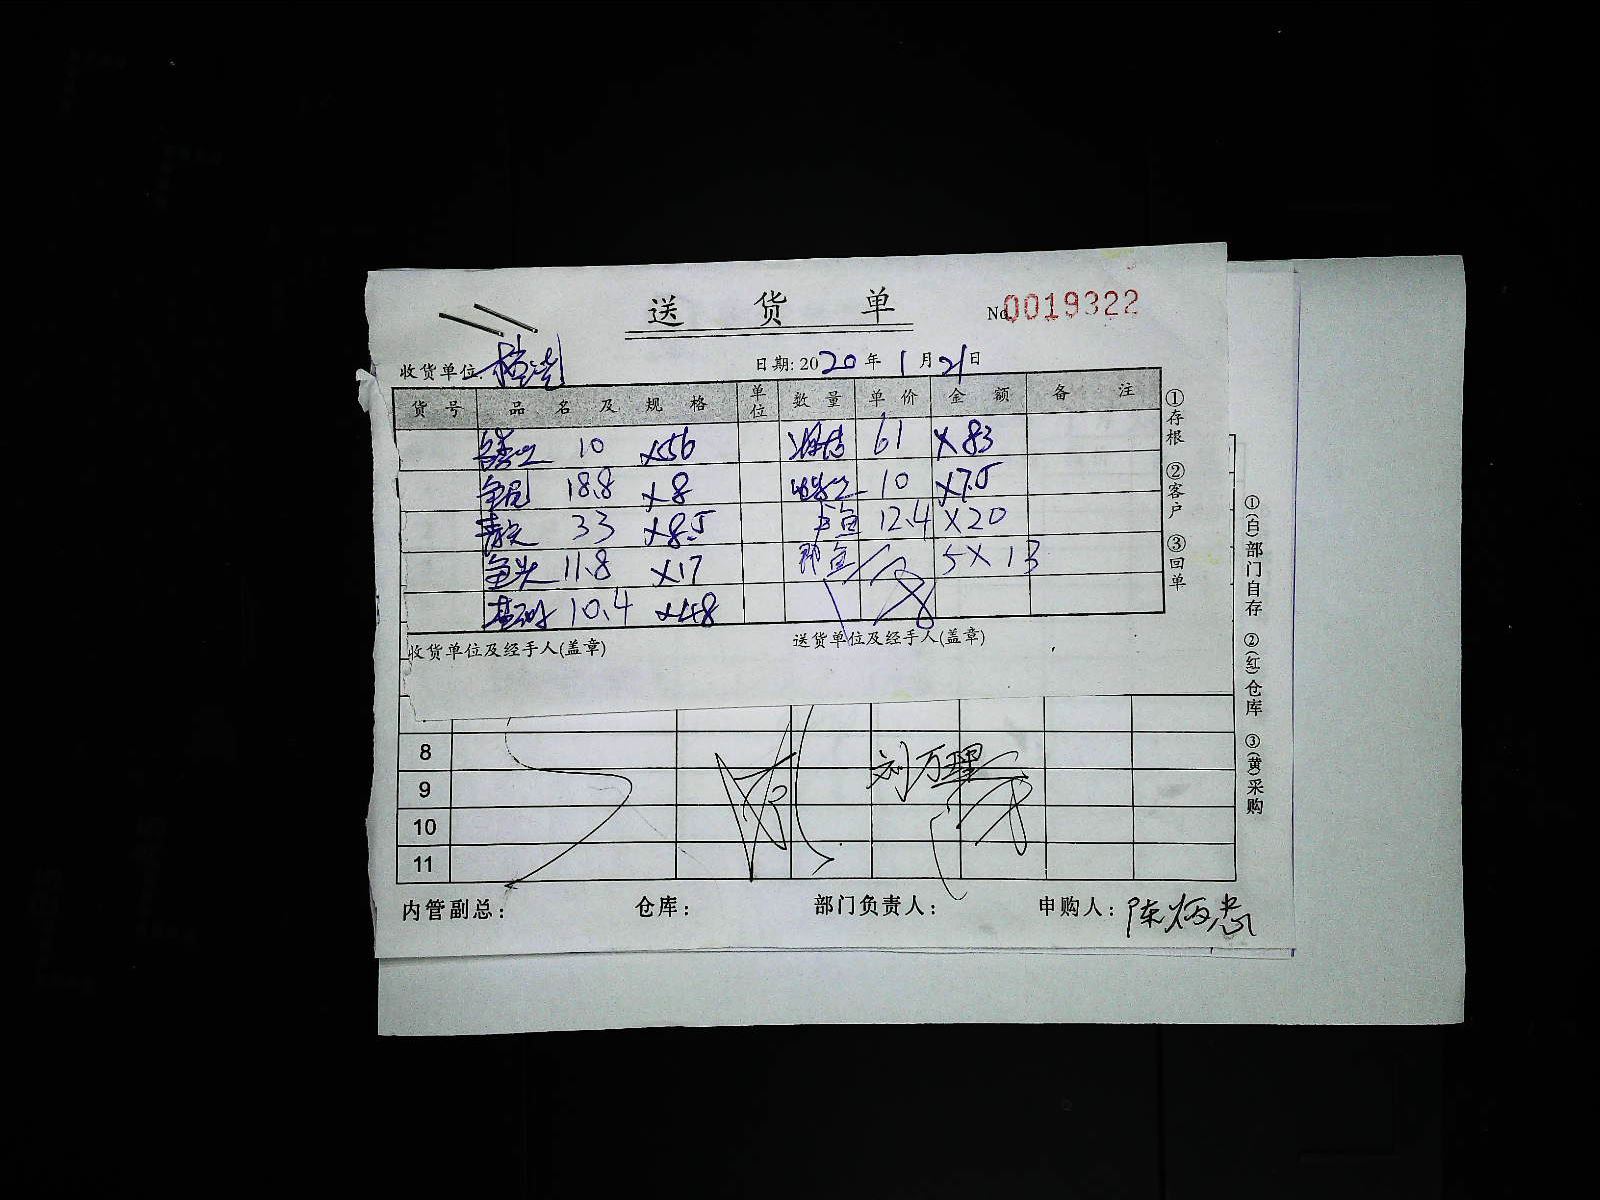 送 货 单
No 0019322
收货单位: 日期: 2020 年 1 月 21 日
货 号 品 名 及 规 格 单位 数 量 单 价 金 额 备 注
10 ×56 61 ×83
鱼尾 18.8 ×8 10 ×7.5
33 ×8.5 鱼 12.4 ×20
鱼头 11.8 ×17 鱼 5×13
10.4 ×48
收货单位及经手人(盖章) 送货单位及经手人(盖章)
①存根 ②客户 ③回单
8
9
10
11
刘万理
内管副总: 仓库: 部门负责人: 申购人: 陈炳忠
①(白)部门自存 ②(红)仓库 ③(黄)采购